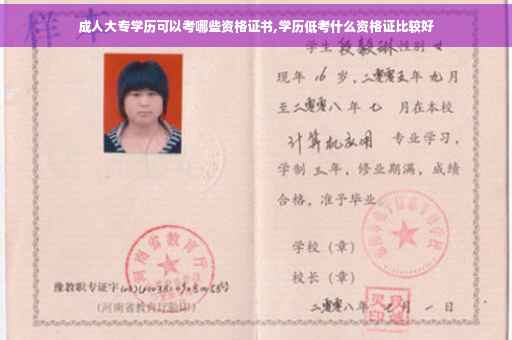 成人大专学历可以考哪些资格证书,学历低考什么资格证比较好
样本
学生段毅琳性别女
现年16岁,二零零五年九月
至二零零八年七月在本校
计算机应用专业学习,
学制三年,修业期满,成绩
合格,准予毕业
学校(章)
校长(章)
河南省教育厅
豫教职专证字
(河南省教育厅验印)
二零零八年七月一日